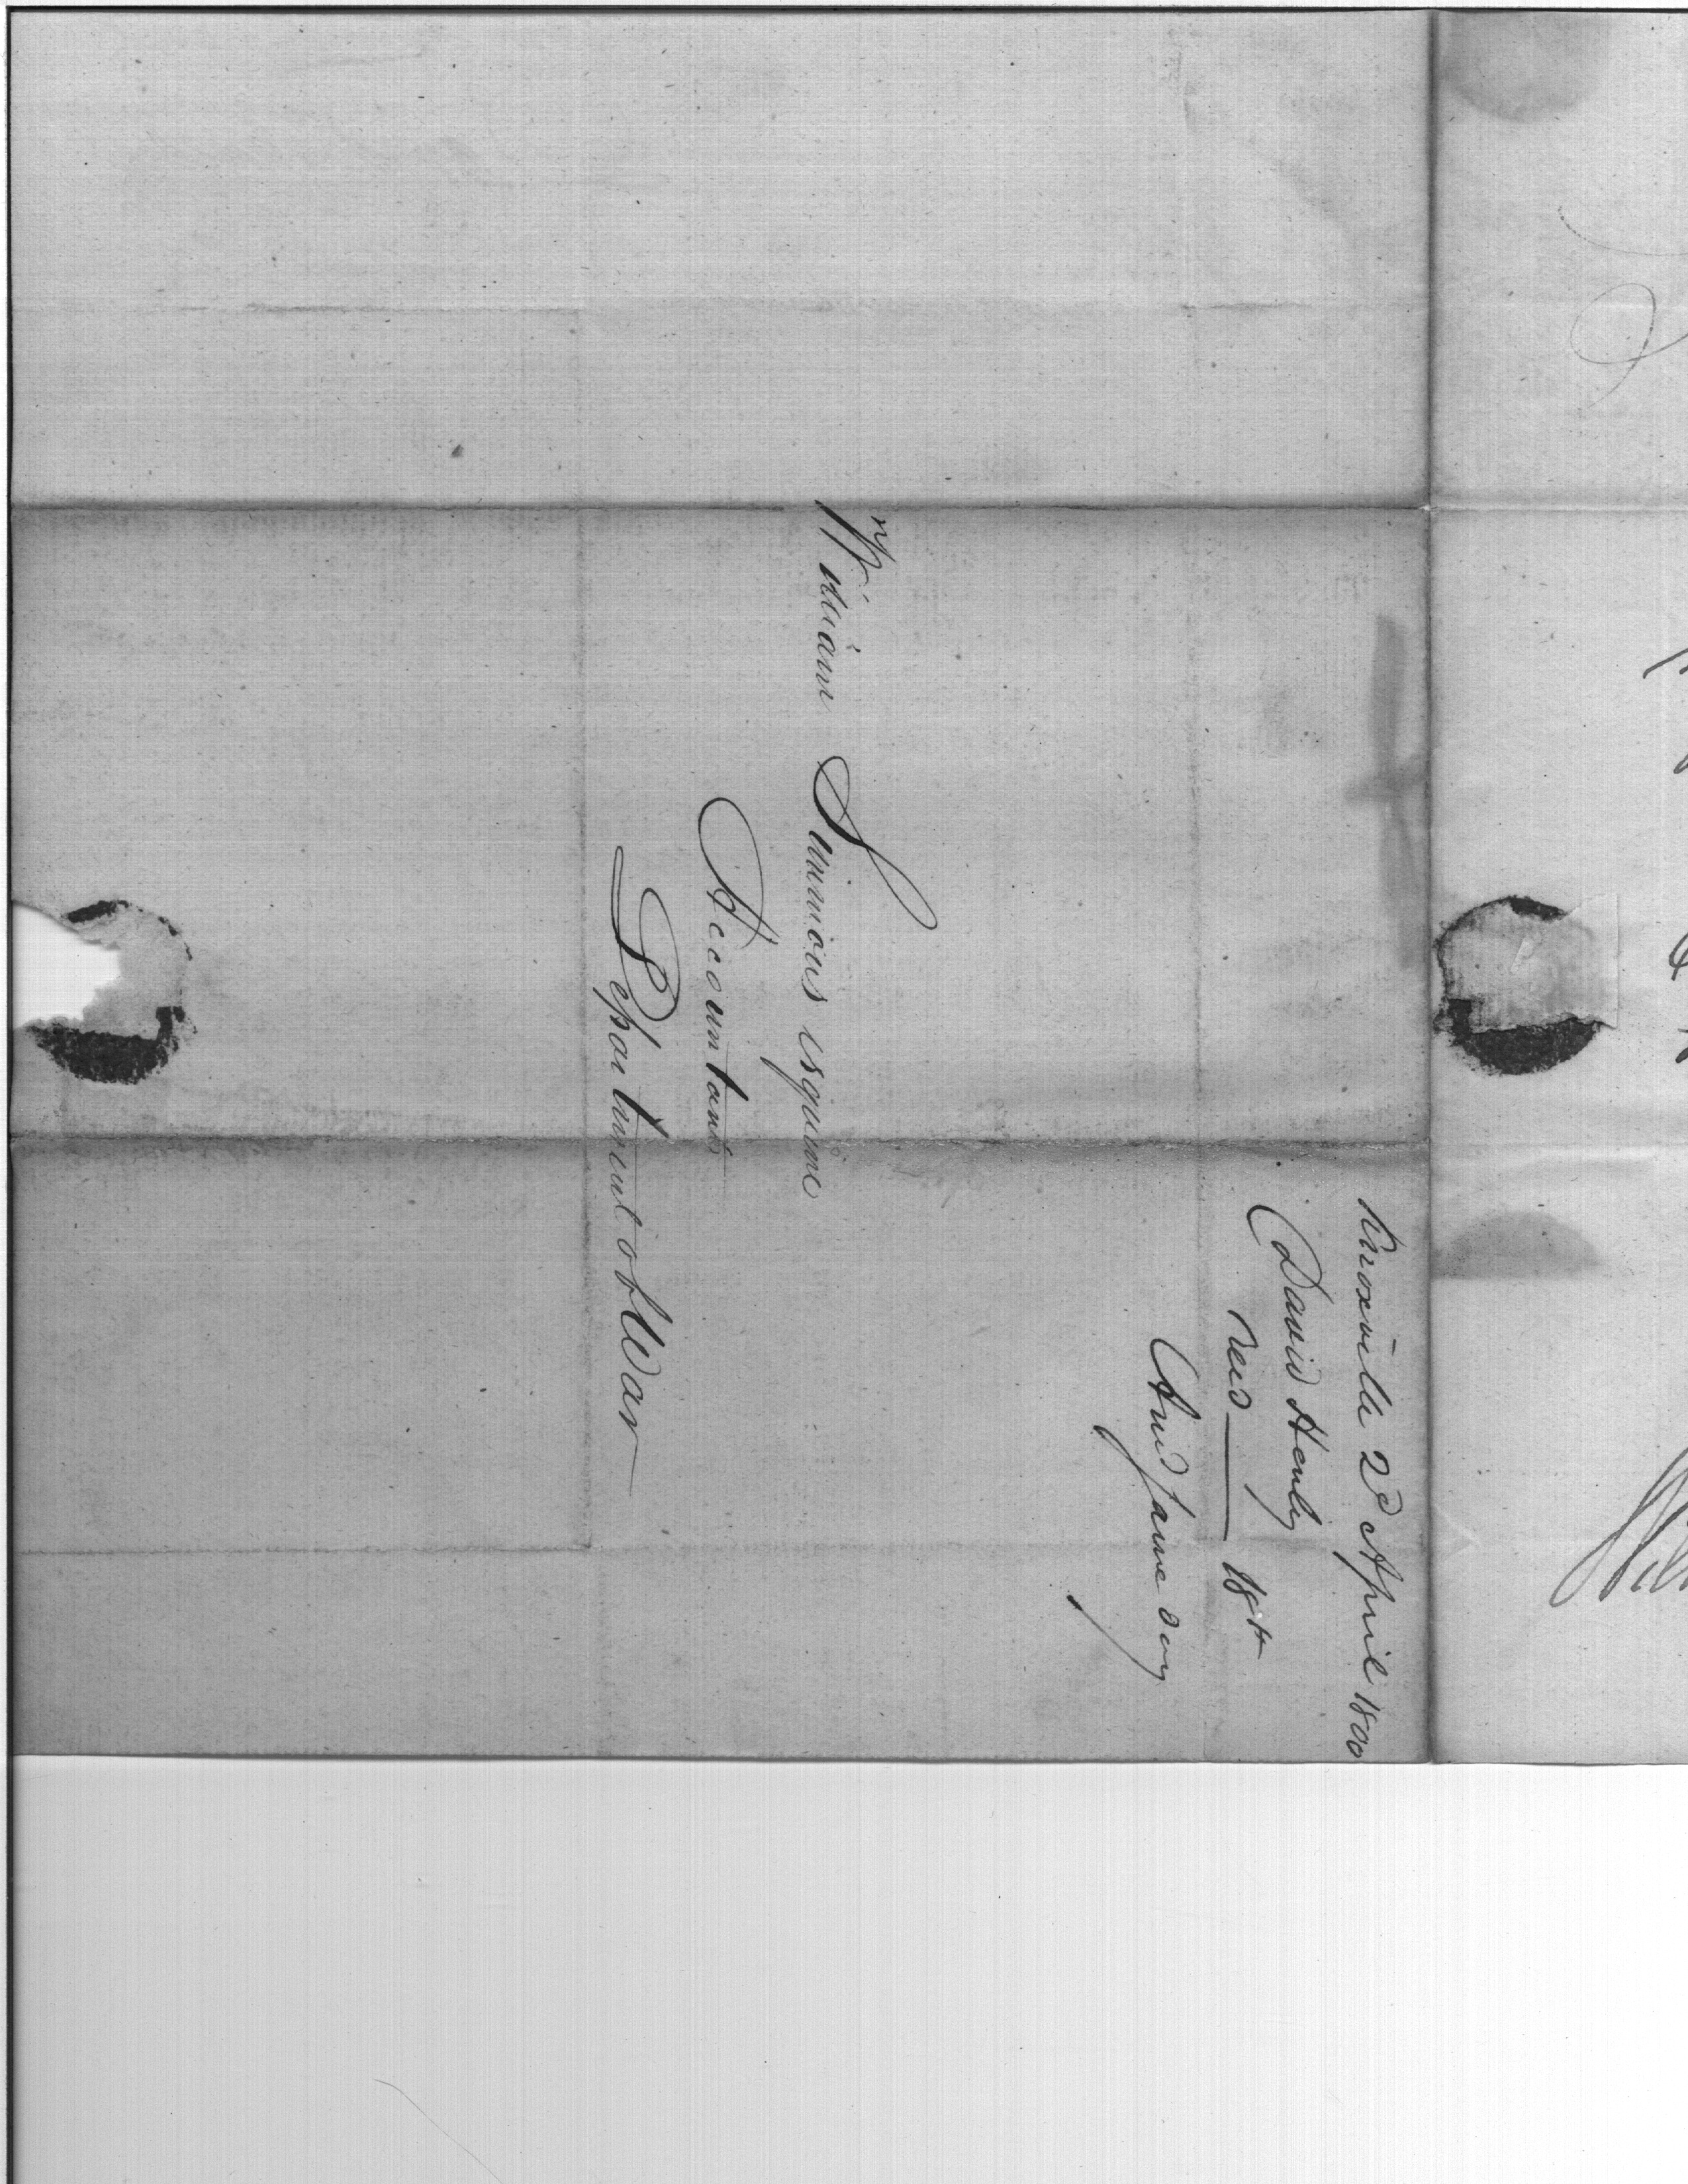 Knoxville 2d April 1800
David Henley
Recd — 18th
Ansd same day
William Simmons esquire
Accountant
Department of War